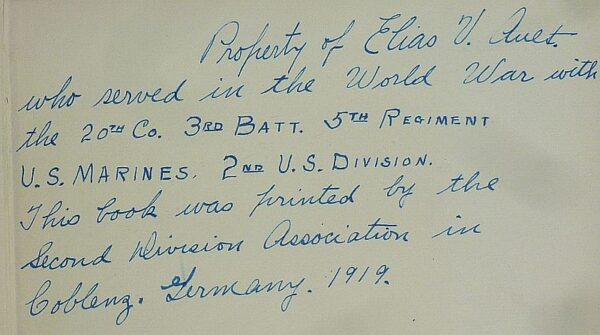 Property of Elias V. Ault.
who served in the World War with
the 20TH Co. 3RD BATT. 5TH REGIMENT
U.S. MARINES. 2ND U.S. DIVISION.
This book was printed by the
Second Division Association in
Coblenz. Germany. 1919.